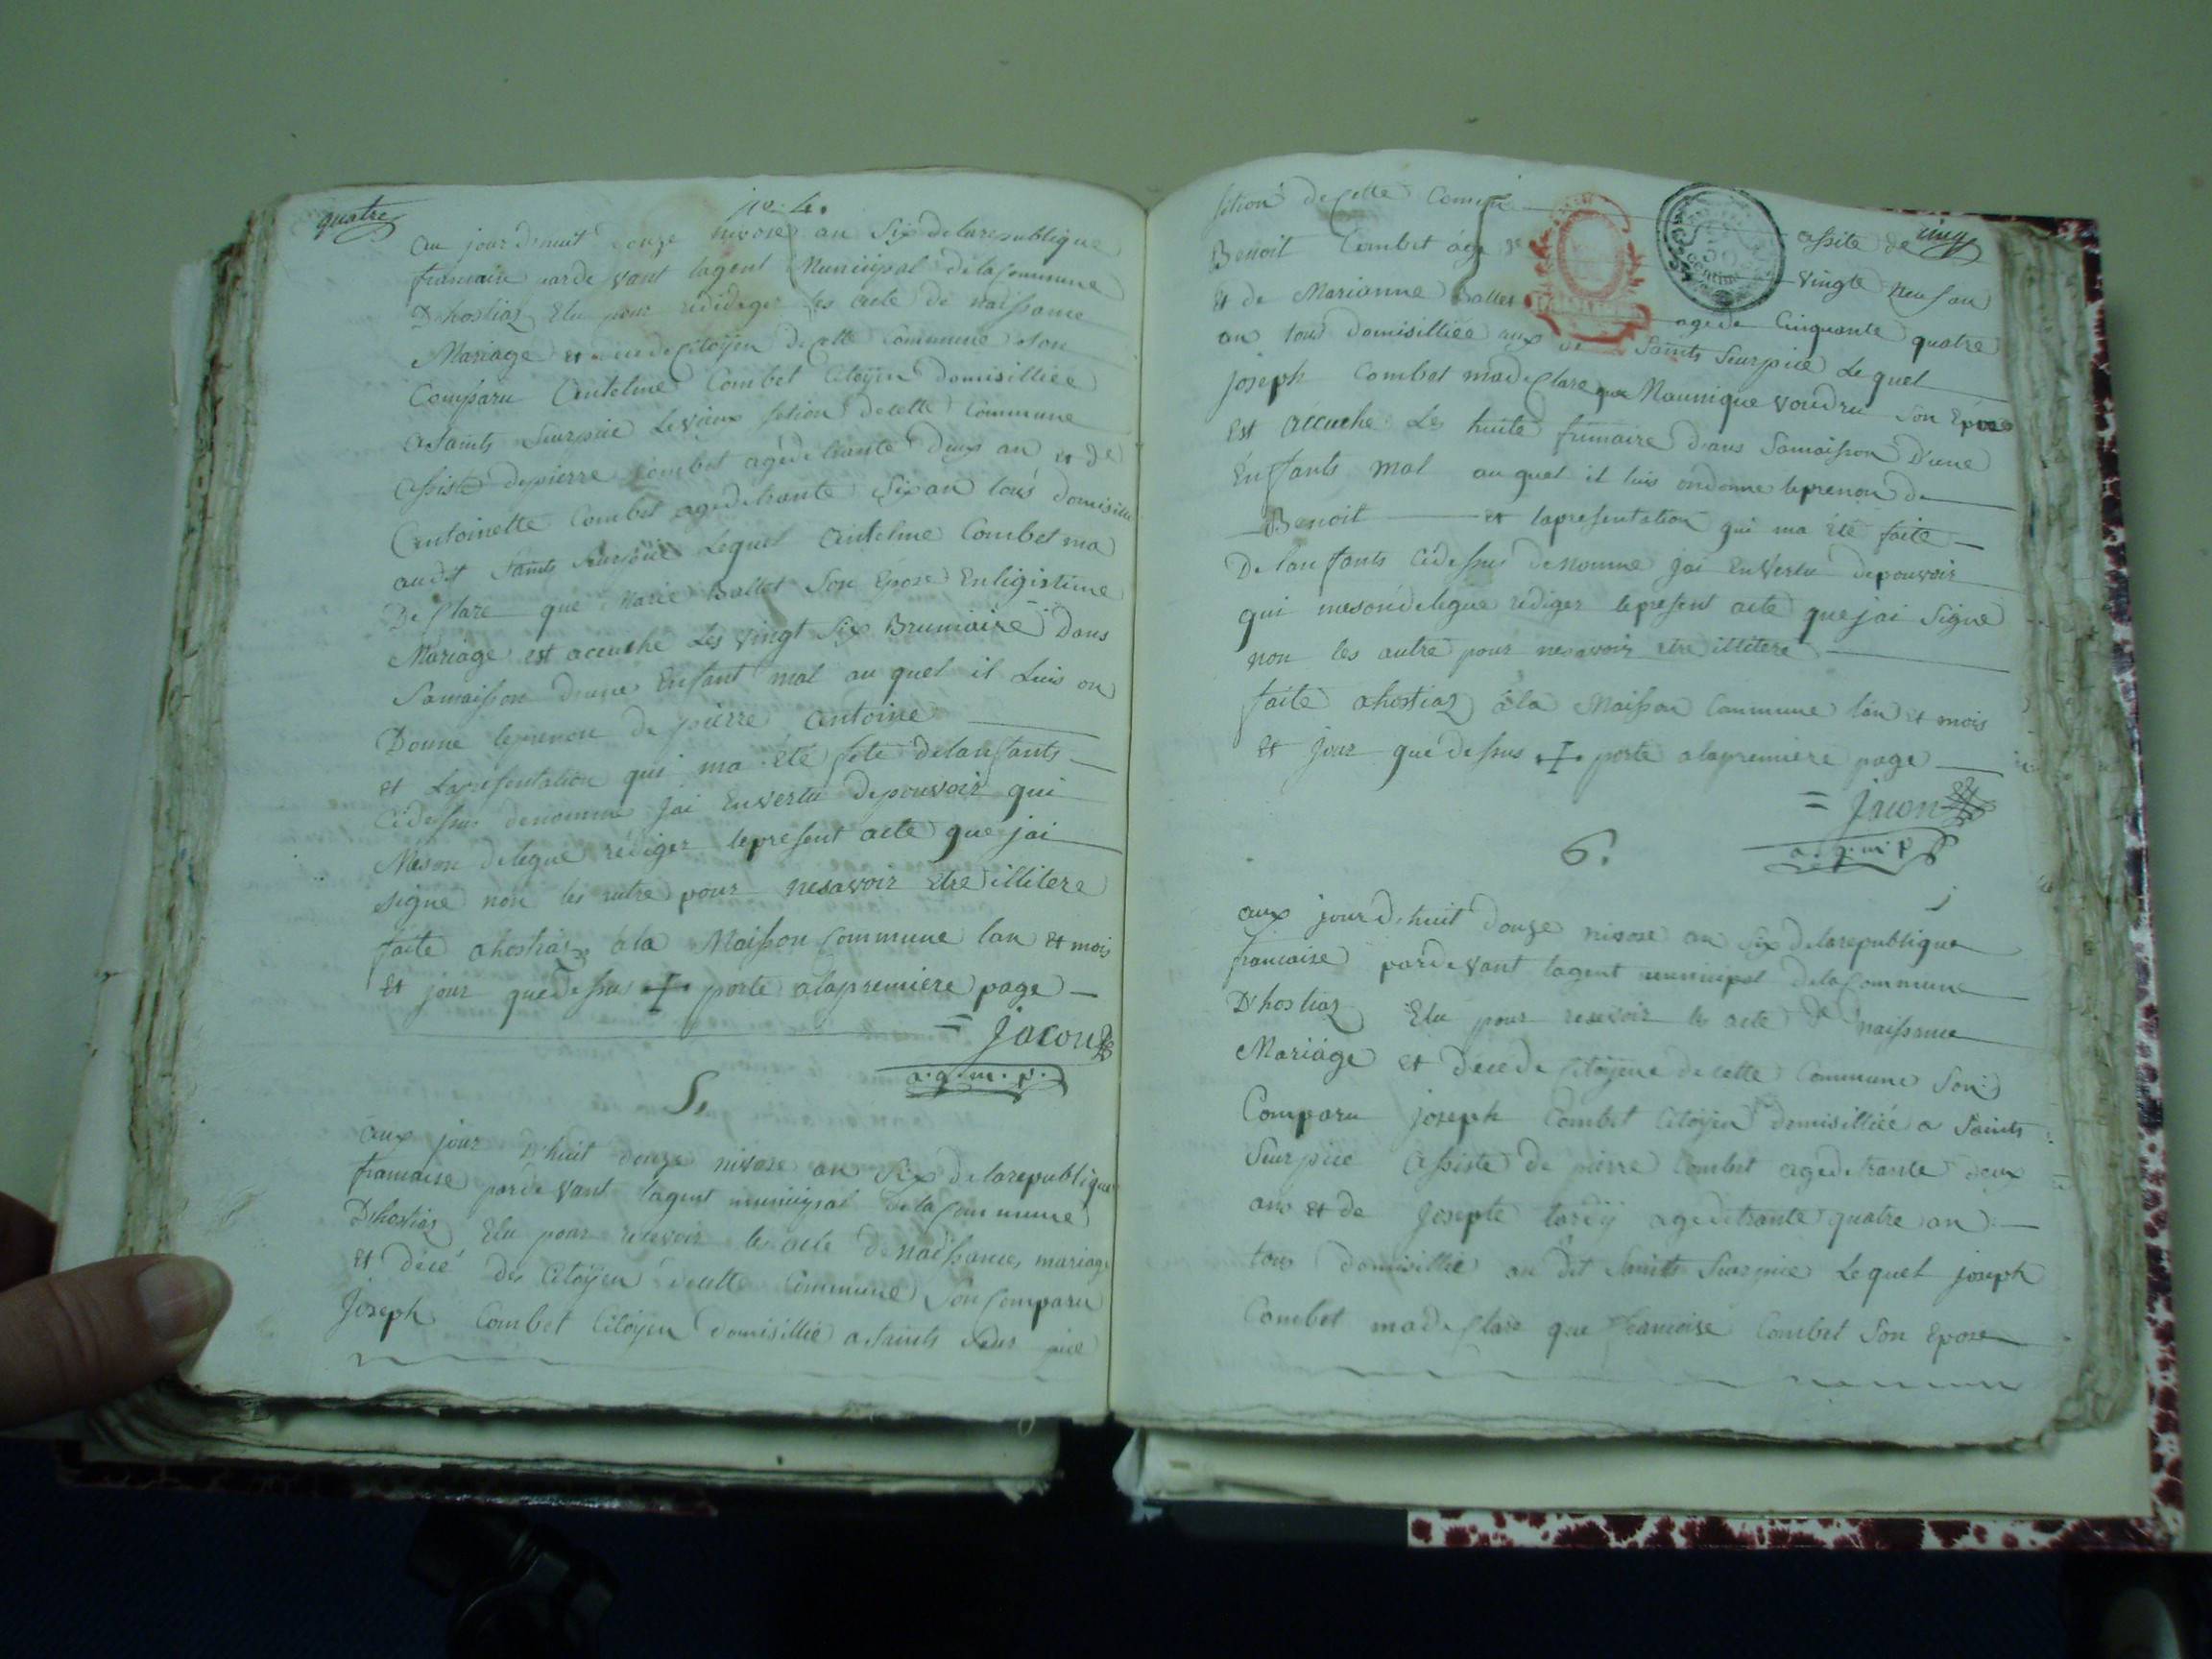 quatre
no. 4.
au jour dhuit douze nivose an six de la republique
francaise parde vant lagent Municipal de la Commune
D'hostiaz Elu pour redideger les acte de naissance
Mariage et décé de Citoÿen de cette Commune son
Comparu Antelme Combet Citoÿen domisilliée
a Saints Seurpice Levieux setion de cette Commune
assiste de pierre Combet agé de trante deux an et de
Antoinette Combet agé de trante six an tous domisillie
au dit Saints Seurpice Lequel antelme Combet ma
De Clare que Marie Ballet Son Epose En ligistime
Mariage est accuche Les vingt six Brumaire Dans
Samaisson d'une Enfant mal au quel il Luis on
Donne le prenon de pierre antoine
et La presentation qui ma été fete de lanfants
Cidessus denomme Jai En vertu de pouvoir qui
Meson delegue rediger le present acte que jai
signe non les autre pour nesavoir etre illitere
faite a hostiaz a la Maisson Commune lan et mois
Et jour que dessus + porte a la premiere page
= Jacon
a. g. m. p.
5,
aux jour D'huit douze nivose an Six de la republique
francaise parde vant lagent municipal de la Commune
D'hostiaz Elu pour recevoir les acte de naissance, mariage
et décé des Citoÿen de cette Commune Son Comparu
Joseph Combet Citoÿen domisillié a Saints Seur pice
cinq
setion de Cette Comune assite de
Benoit Combet age de vingte neuf an
et de Marianne Ballet age de Cinquante quatre
an tous domisilliée aux di Saints Seurpice Lequel
joseph Combet ma de Clare que Maunique voudru Son Epose
Est accuche Les huite frimaire dans Samaisson D'une
Enffants mal au quel il luis on donne le prenon de
Benoit et la presentation qui ma été faite
De lanfants Cidessus denomme jai En vertu de pouvoir
qui meson delegue rediger le present acte que jai signe
non les autre pour nesavoir etre illitere
faite a hostiaz a la Maisson Commune lan et mois
et jour que dessus + porte a la premiere page
= Jacon
a. g. m. p.
6.
aux jour d'huit douze nivose an six de la republique
francaise parde vant lagent municipal de la Commune
D'hostiaz Elu pour recevoir les acte de naissance
Mariage et déce de Citoÿene de cette Commune Son
Comparu joseph Combet Citoÿen domisilliée a Saints
Seurpice assiste de pierre Combet age de trante deux
ans et de Josepte tardÿ age de trante quatre an
tous domisillie au dit Saints Seurpice Lequel joseph
Combet ma de Clare que francoise Combet Son Epose